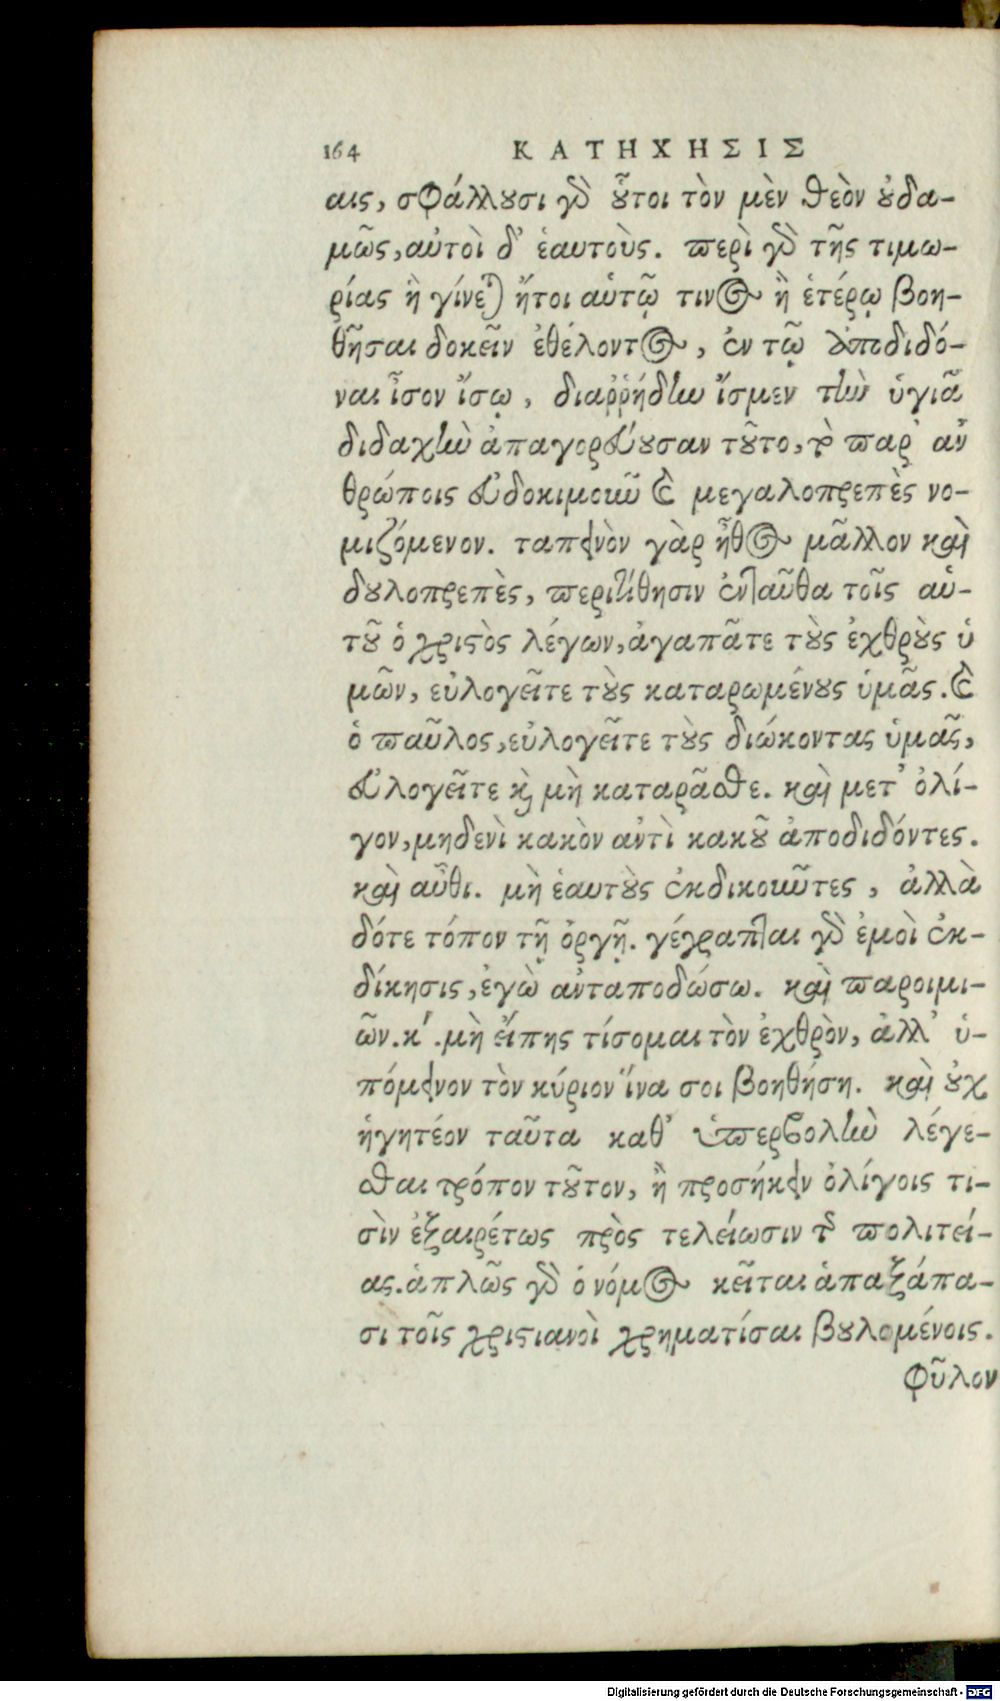 164 ΚΑΤΗΧΗΣΙΣ
αις, σφάλλουσι γὰρ οὗτοι τὸν μὲν θεὸν οὐδα-
μῶς, αὐτοὶ δ' ἑαυτοὺς. περὶ γὰρ τῆς τιμω-
ρίας ἣ γίνεται ἤτοι αὑτῷ τινος ἢ ἑτέρῳ βοη-
θῆσαι δοκεῖν ἐθέλοντος, ἐν τῷ ἀποδιδό-
ναι ἶσον ἴσῳ, διαῤῥήδην ἴσμεν τὴν ὑγιᾶ
διδαχὴν ἀπαγορεύουσαν τοῦτο, τὸ παρ' ἀν
θρώποις εὐδοκιμοῦν καὶ μεγαλοπρεπὲς νο-
μιζόμενον. ταπεινὸν γὰρ ἦθος μᾶλλον καὶ
δουλοπρεπὲς, περιτίθησιν ἐνταῦθα τοῖς αὑ-
τοῦ ὁ χριστὸς λέγων, ἀγαπᾶτε τοὺς ἐχθροὺς ὑ
μῶν, εὐλογεῖτε τοὺς καταρωμένους ὑμᾶς. καὶ
ὁ παῦλος, εὐλογεῖτε τοὺς διώκοντας ὑμᾶς,
εὐλογεῖτε καὶ μὴ καταρᾶσθε. καὶ μετ' ὀλί-
γον, μηδενὶ κακὸν ἀντὶ κακοῦ ἀποδιδόντες.
καὶ αὖθι. μὴ ἑαυτοὺς ἐκδικοῦντες, ἀλλὰ
δότε τόπον τῇ ὀργῇ. γέγραπται γὰρ ἐμοὶ ἐκ-
δίκησις, ἐγὼ ἀνταποδώσω. καὶ παροιμι-
ῶν. κ'. μὴ εἴπης τίσομαι τὸν ἐχθρὸν, ἀλλ' ὑ-
πόμεινον τὸν κύριον ἵνα σοι βοηθήση. καὶ οὐχ
ἡγητέον ταῦτα καθ' ὑπερβολὴν λέγε-
σθαι τρόπον τοῦτον, ἢ προσήκειν ὀλίγοις τι-
σὶν ἐξαιρέτως πρὸς τελείωσιν τῆς πολιτεί-
ας. ἁπλῶς γὰρ ὁ νόμος κεῖται ἁπαξάπα-
σι τοῖς χριστιανοὶ χρηματίσαι βουλομένοις.
φῦλον
Digitalisierung gefördert durch die Deutsche Forschungsgemeinschaft - DFG